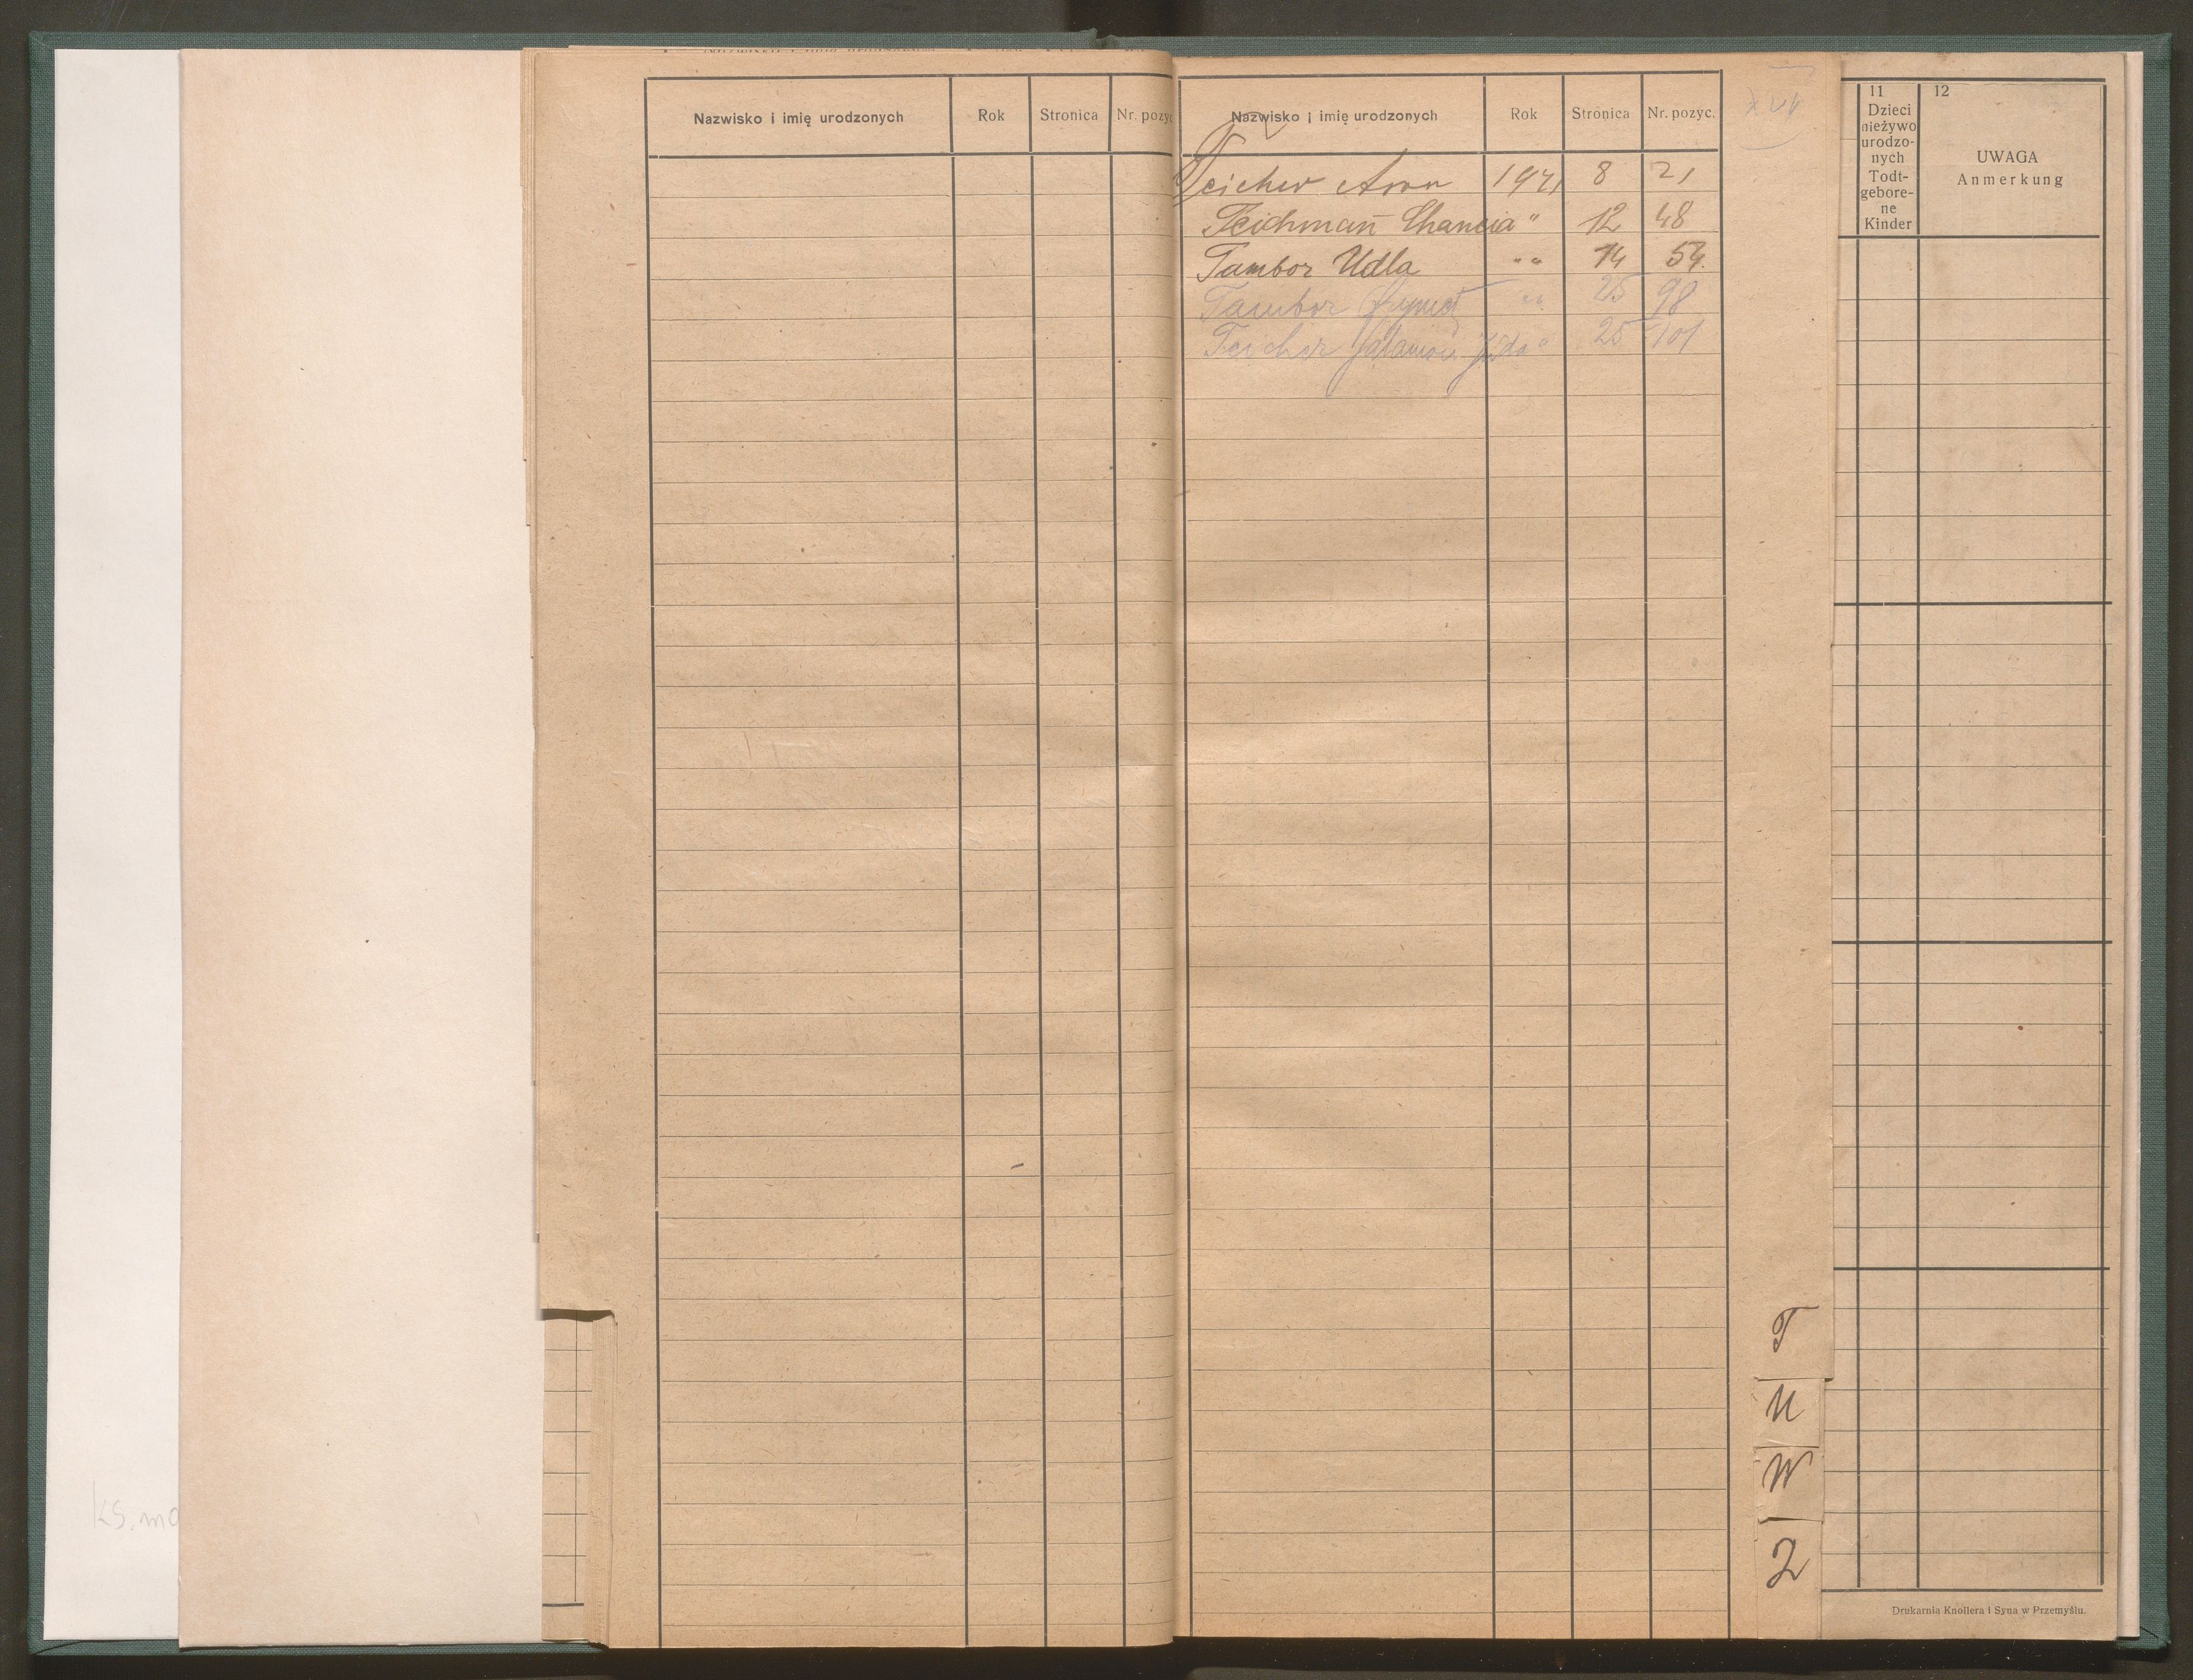 Nazwisko i imię urodzonych Rok Stronica Nr. pozyc
Nazwisko i imię urodzonych Rok Stronica Nr. pozyc.
Teicher Aron 1941 8 21
Teichman̄ Chancia " 12 48
Tambor Udla " " 14 54.
Tambor " " 25 98
Teicher Salamon Juda " 25 101
T
U
W
Z
11
Dzieci
nieżywo
urodzo-
nych
Todt-
gebore-
ne
Kinder
12
UWAGA
Anmerkung
Drukarnia Knollera i Syna w Przemyślu.
ks. mo